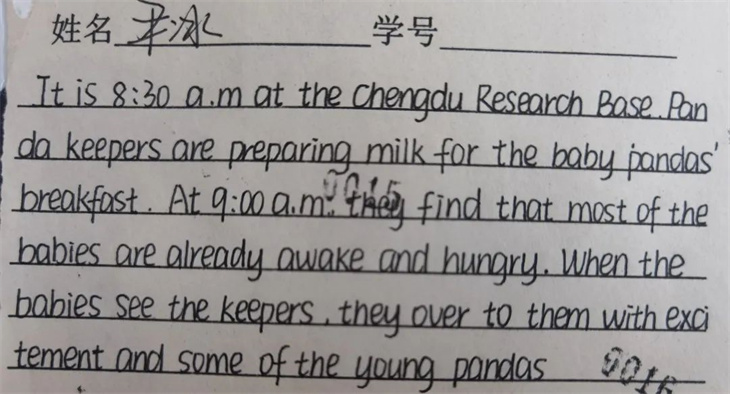 姓名 学号
It is 8:30 a.m at the Chengdu Research Base. Pan
da keepers are preparing milk for the baby pandas'
breakfast. At 9:00 a.m. they find that most of the
babies are already awake and hungry. When the
babies see the keepers, they over to them with exci
tement and some of the young pandas